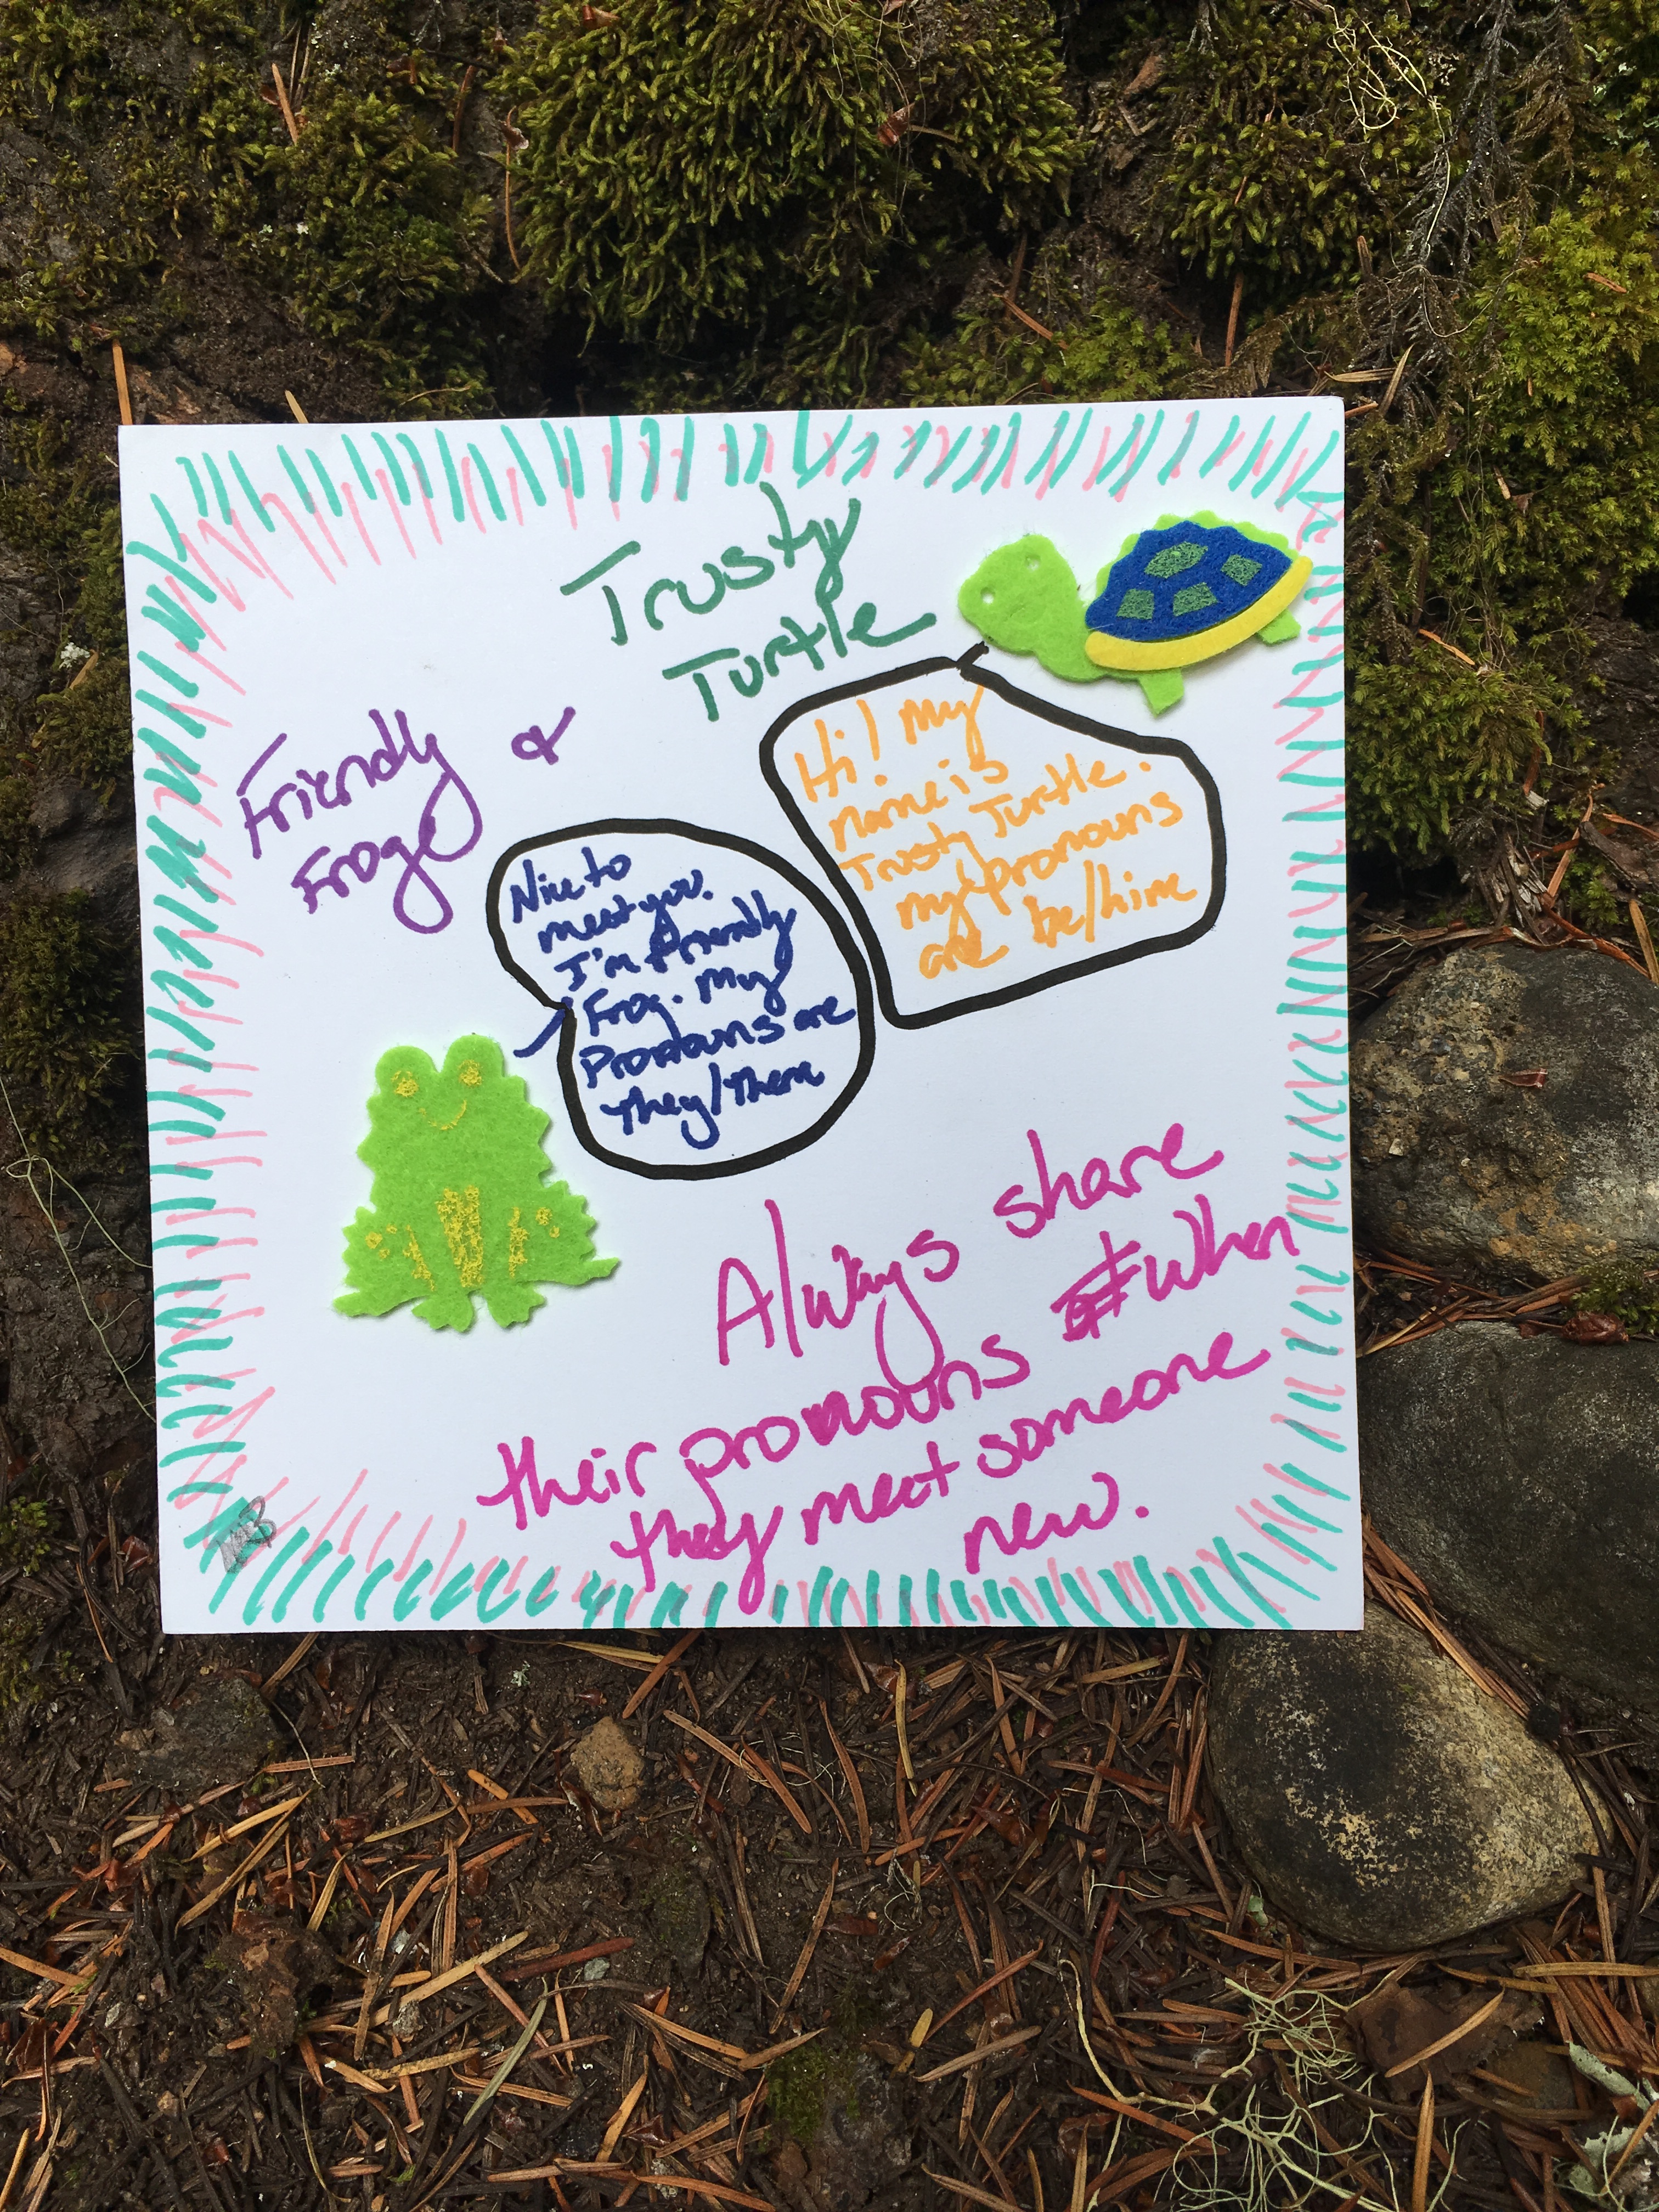 Friendly
Frog
&
Trusty
Turtle
Hi! My
name is
Trusty Turtle.
my pronouns
are he/him
Nice to
meet you.
I'm Friendly
Frog. My
Pronouns are
they/them
Always share
their pronouns when
they meet someone
new.